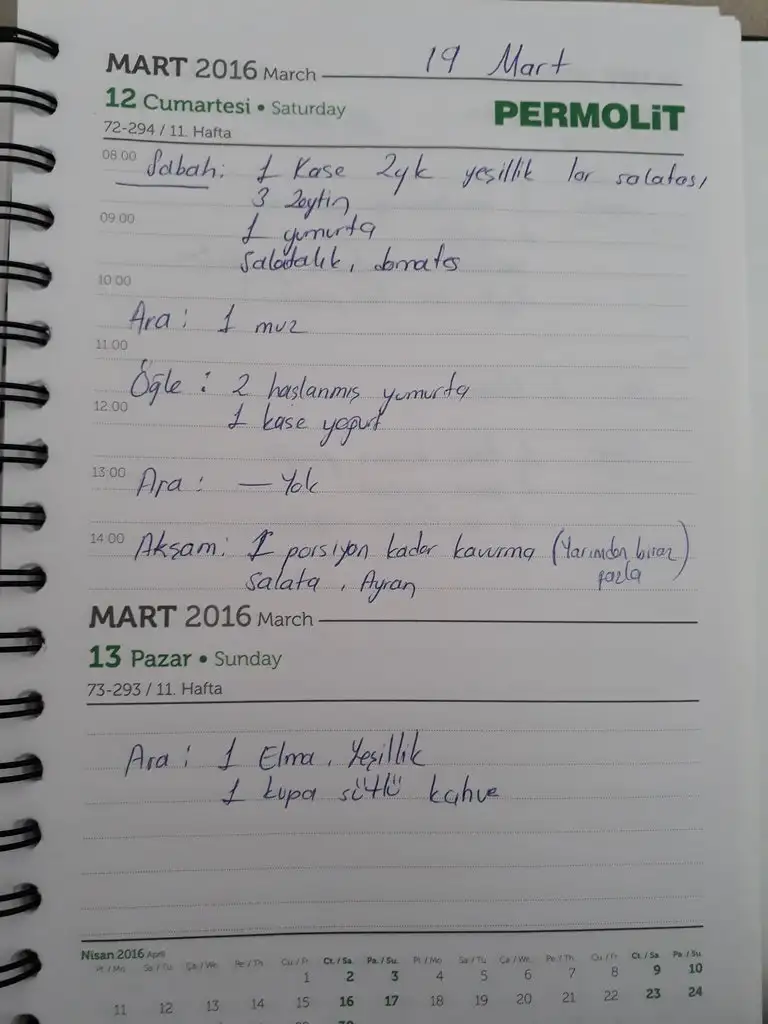 MART 2016 March 19 Mart
12 Cumartesi • Saturday PERMOLiT
72-294 / 11. Hafta
08:00 Sabah: 1 Kase 2yk yeşillik lor salatası
3 Zeytin
09:00 1 yumurta
Salatalık, domates
10:00
Ara: 1 muz
11:00
Öğle: 2 haşlanmış yumurta
12:00 1 kase yoğurt
13:00 Ara: — Yok
14:00 Akşam: 1 porsiyon kadar kavurma (Yarımdan biraz fazla)
Salata, Ayran
MART 2016 March
13 Pazar • Sunday
73-293 / 11. Hafta
Ara: 1 Elma, Yeşillik
1 kupa sütlü kahve
Nisan 2016 April
Pt / Mo Sa / Tu Ça / We Pe / Th Cu / Fr Ct. / Sa. Pa. / Su. Pt / Mo Sa / Tu Ça / We Pe / Th Cu / Fr Ct. / Sa Pa. / Su
1 2 3 4 5 6 7 8 9 10
11 12 13 14 15 16 17 18 19 20 21 22 23 24
30